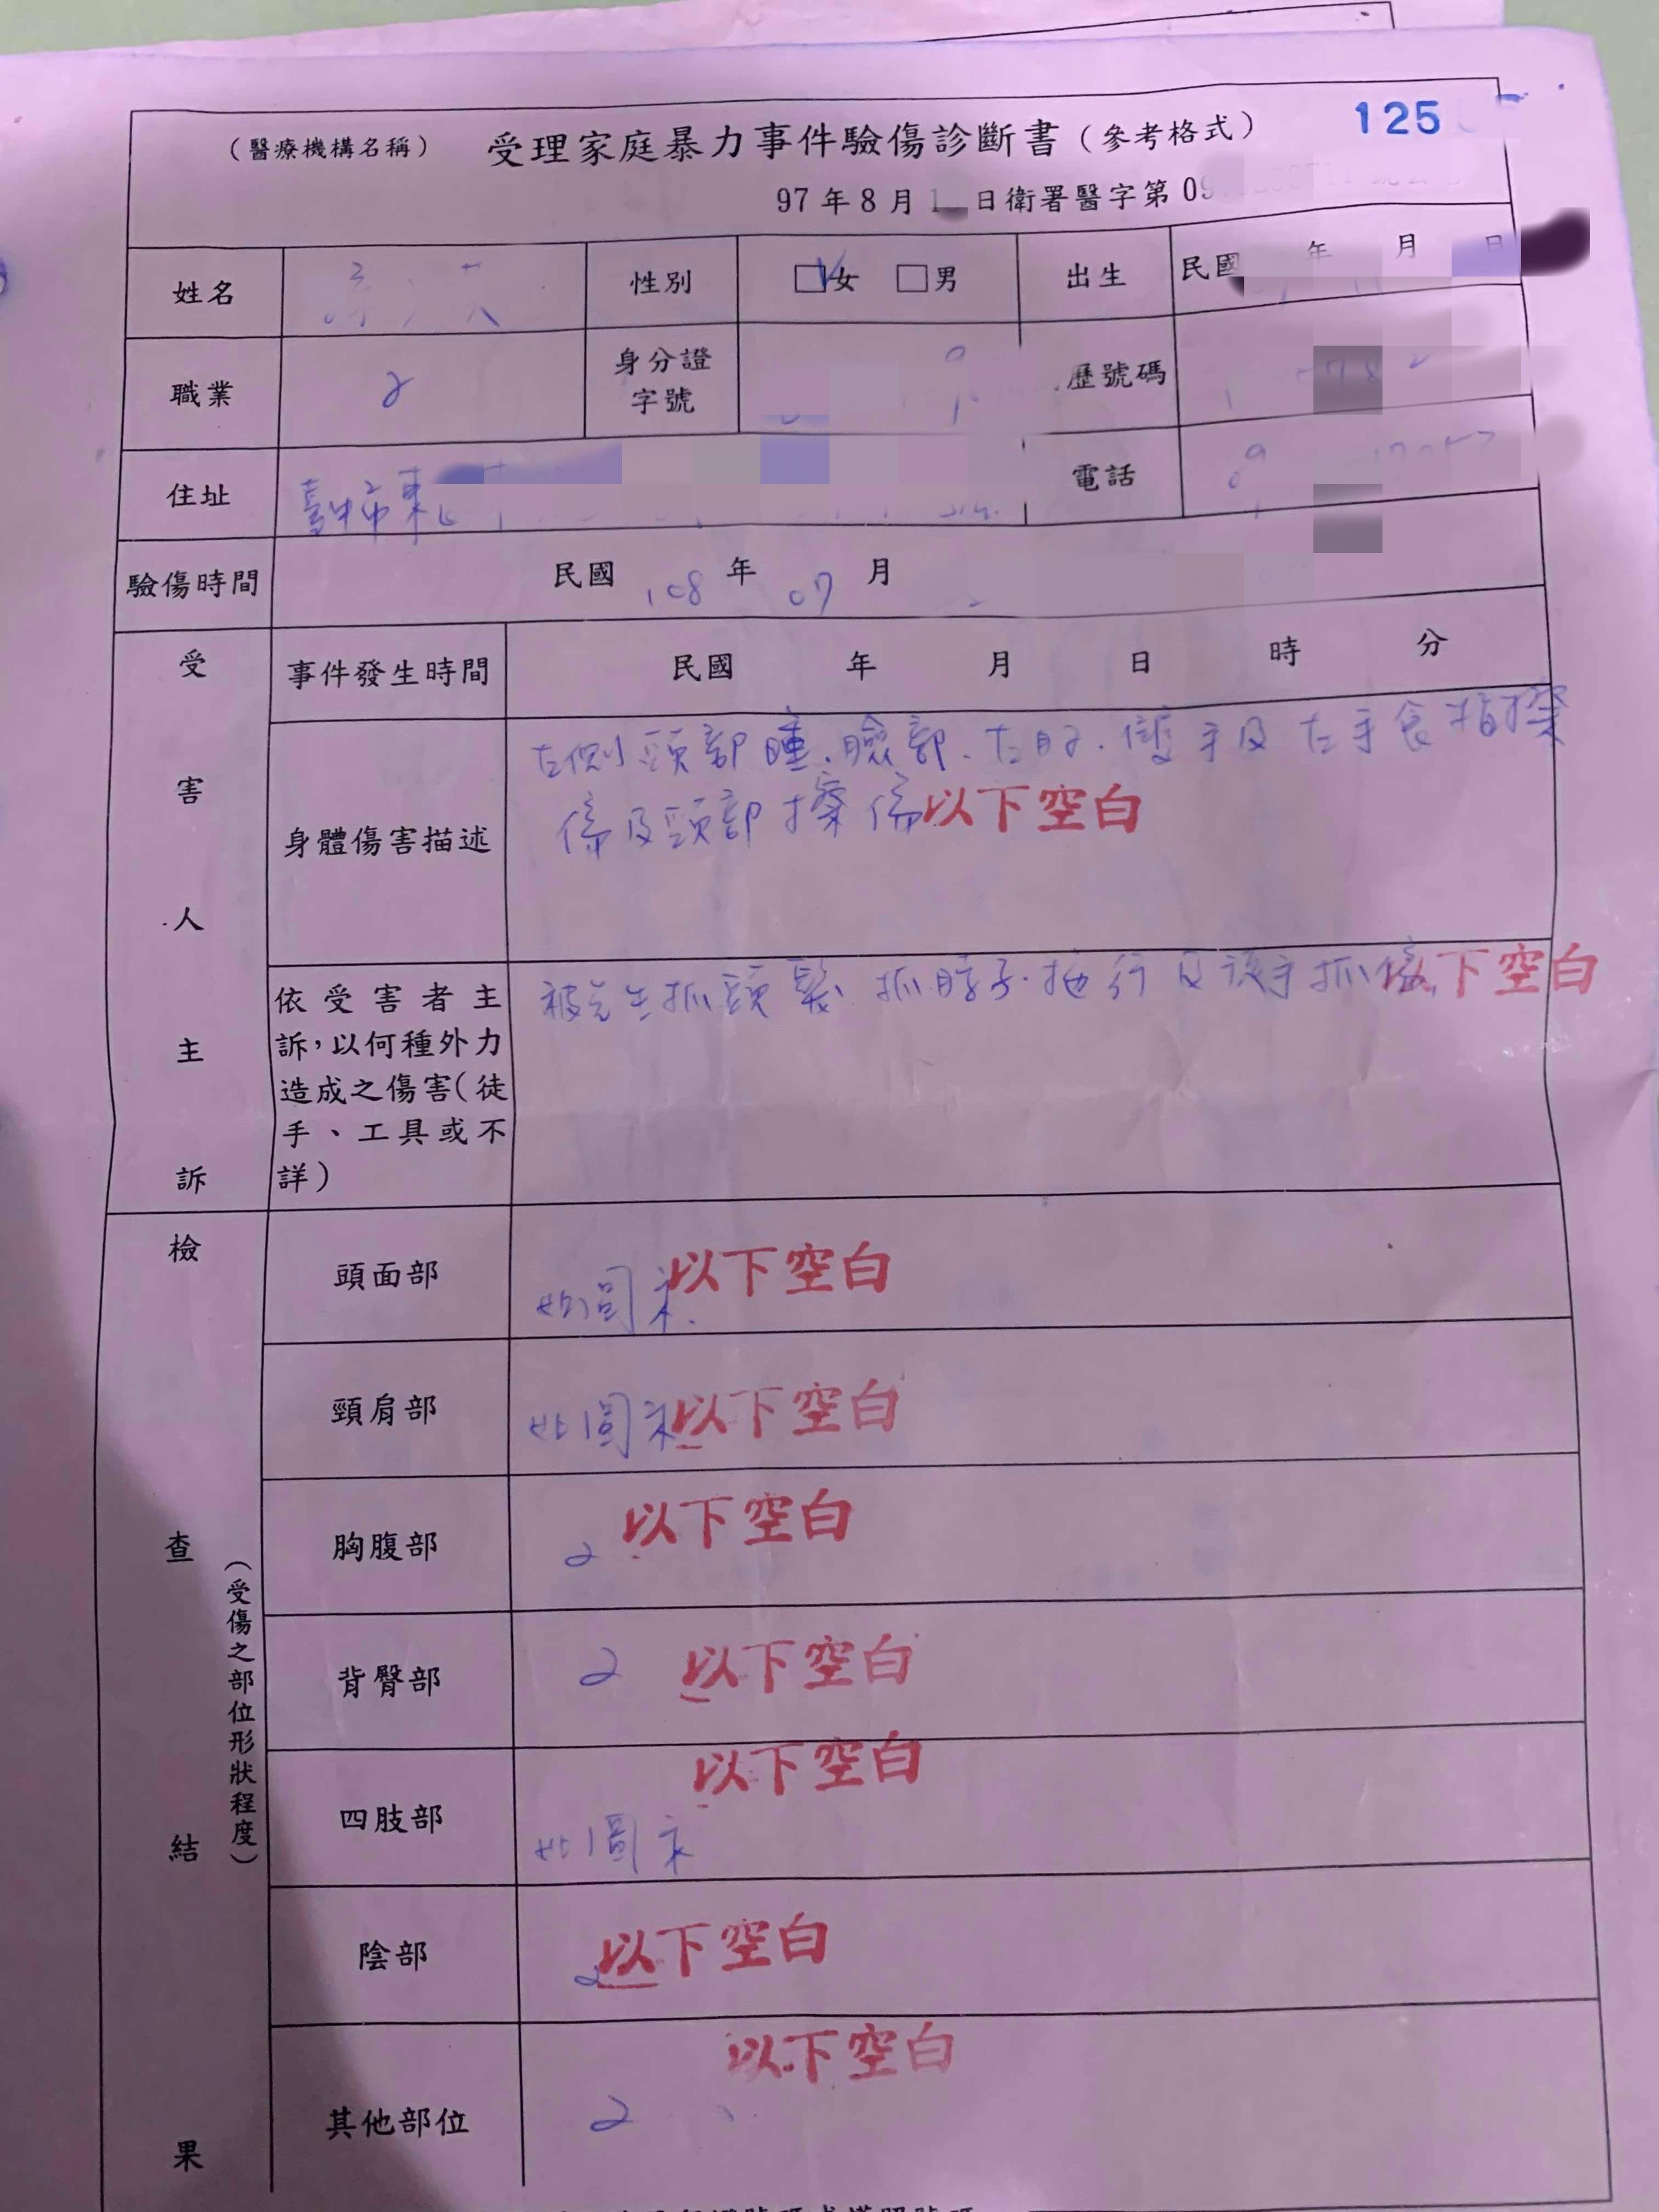 (醫療機構名稱) 受理家庭暴力事件驗傷診斷書(參考格式) 125
97年8月1 日衛署醫字第09
姓名 性別 □女 □男 出生 民國 年 月 日
職業 身分證字號 歷號碼
住址 臺中市東 電話 09
驗傷時間 民國 108 年 07 月
受害人主訴
事件發生時間 民國 年 月 日 時 分
身體傷害描述
左側頭部腫、臉部、左肘、雙手及左手食指擦
傷及頸部擦傷 以下空白
依受害者主
訴,以何種外力
造成之傷害(徒
手、工具或不
詳)
被先生抓頭髮、抓脖子、拖行及徒手抓傷 以下空白
檢查結果
(受傷之部位形狀程度)
頭面部 如圖示 以下空白
頸肩部 如圖示 以下空白
胸腹部 以下空白
背臀部 以下空白
四肢部 如圖示 以下空白
陰部 以下空白
其他部位 以下空白